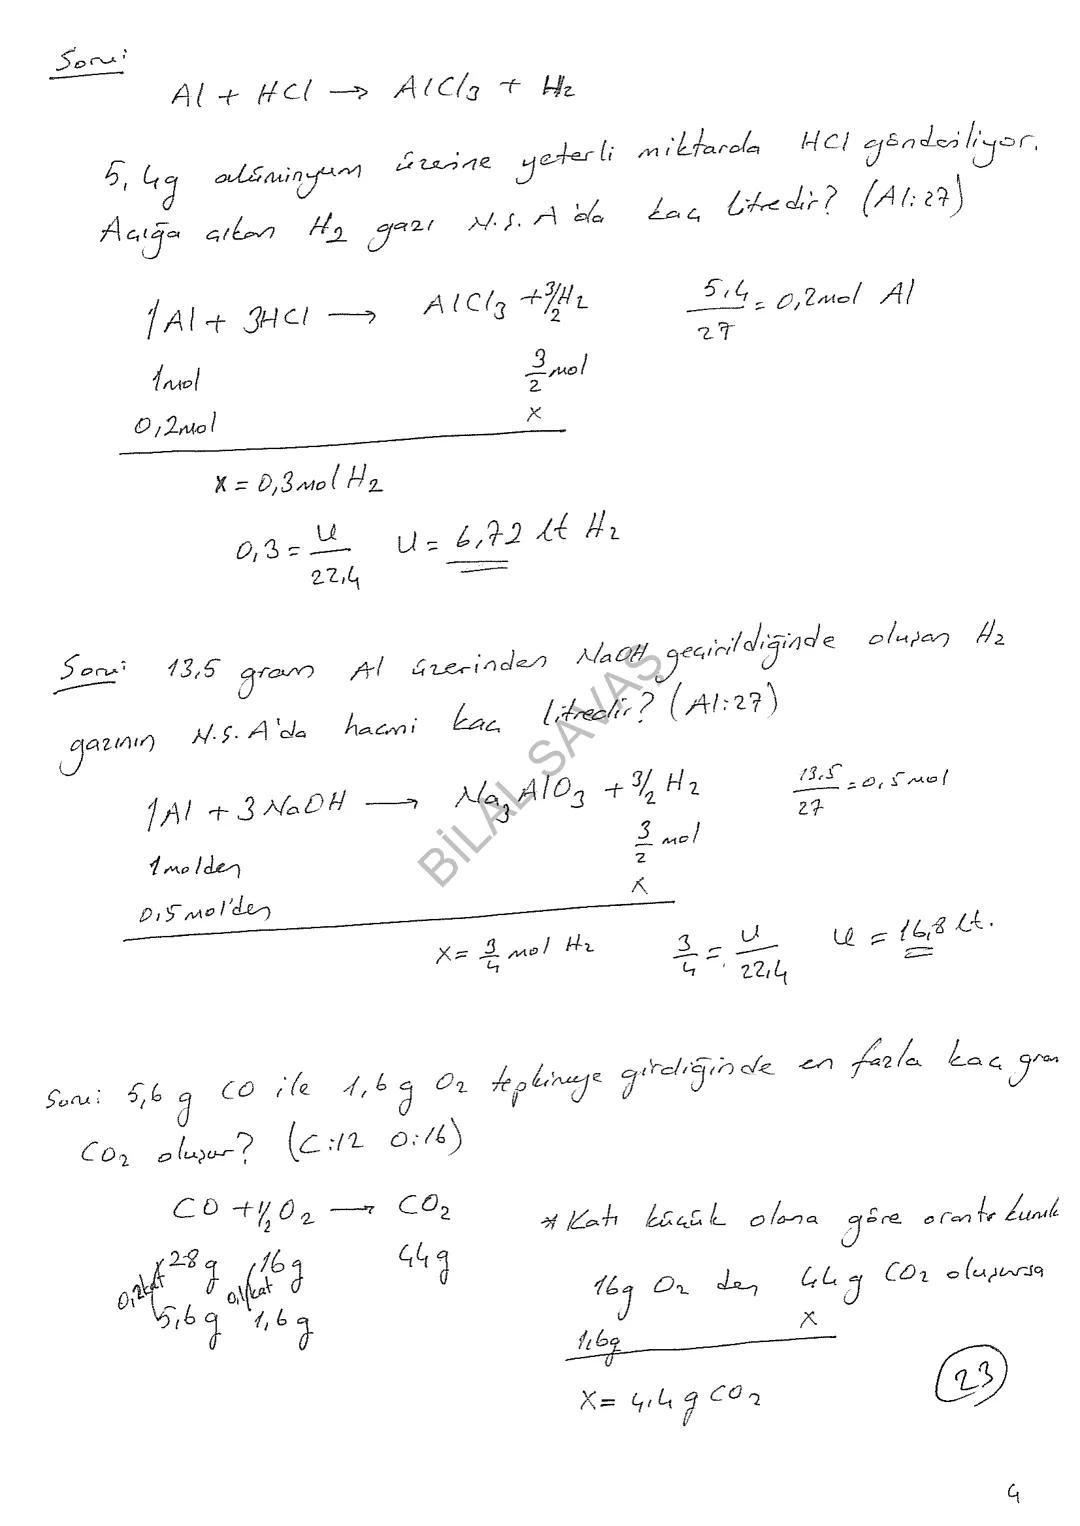 Soru:
Al + HCl → AlCl3 + H2
5,4g alüminyum üzerine yeterli miktarda HCl gönderiliyor.
Açığa çıkan H2 gazı N.Ş.A'da kaç litredir? (Al:27)
1Al + 3HCl → AlCl3 + 3/2H2
5,4/27 = 0,2mol Al
1mol 3/2 mol
0,2mol x
x = 0,3mol H2
0,3 = V/22,4 V = 6,72 lt H2
Soru: 13,5 gram Al üzerinden NaOH geçirildiğinde oluşan H2
gazının N.Ş.A'da hacmi kaç litredir? (Al:27)
1Al + 3NaOH → Na3AlO3 + 3/2 H2
13,5/27 = 0,5mol
1molden 3/2 mol
0,5mol'den x
x = 3/4 mol H2 3/4 = V/22,4 V = 16,8 lt.
BİLAL SAVAŞ
Soru: 5,6 g CO ile 1,6 g O2 tepkimeye girdiğinde en fazla kaç gram
CO2 oluşur? (C:12 O:16)
CO + 1/2O2 → CO2
28g 16g 44g
0,2kat 0,1kat
5,6g 1,6g
* Katı küçük olana göre orantı kurulur
16g O2 den 44g CO2 oluşursa
1,6g x
x = 4,4g CO2
23
4